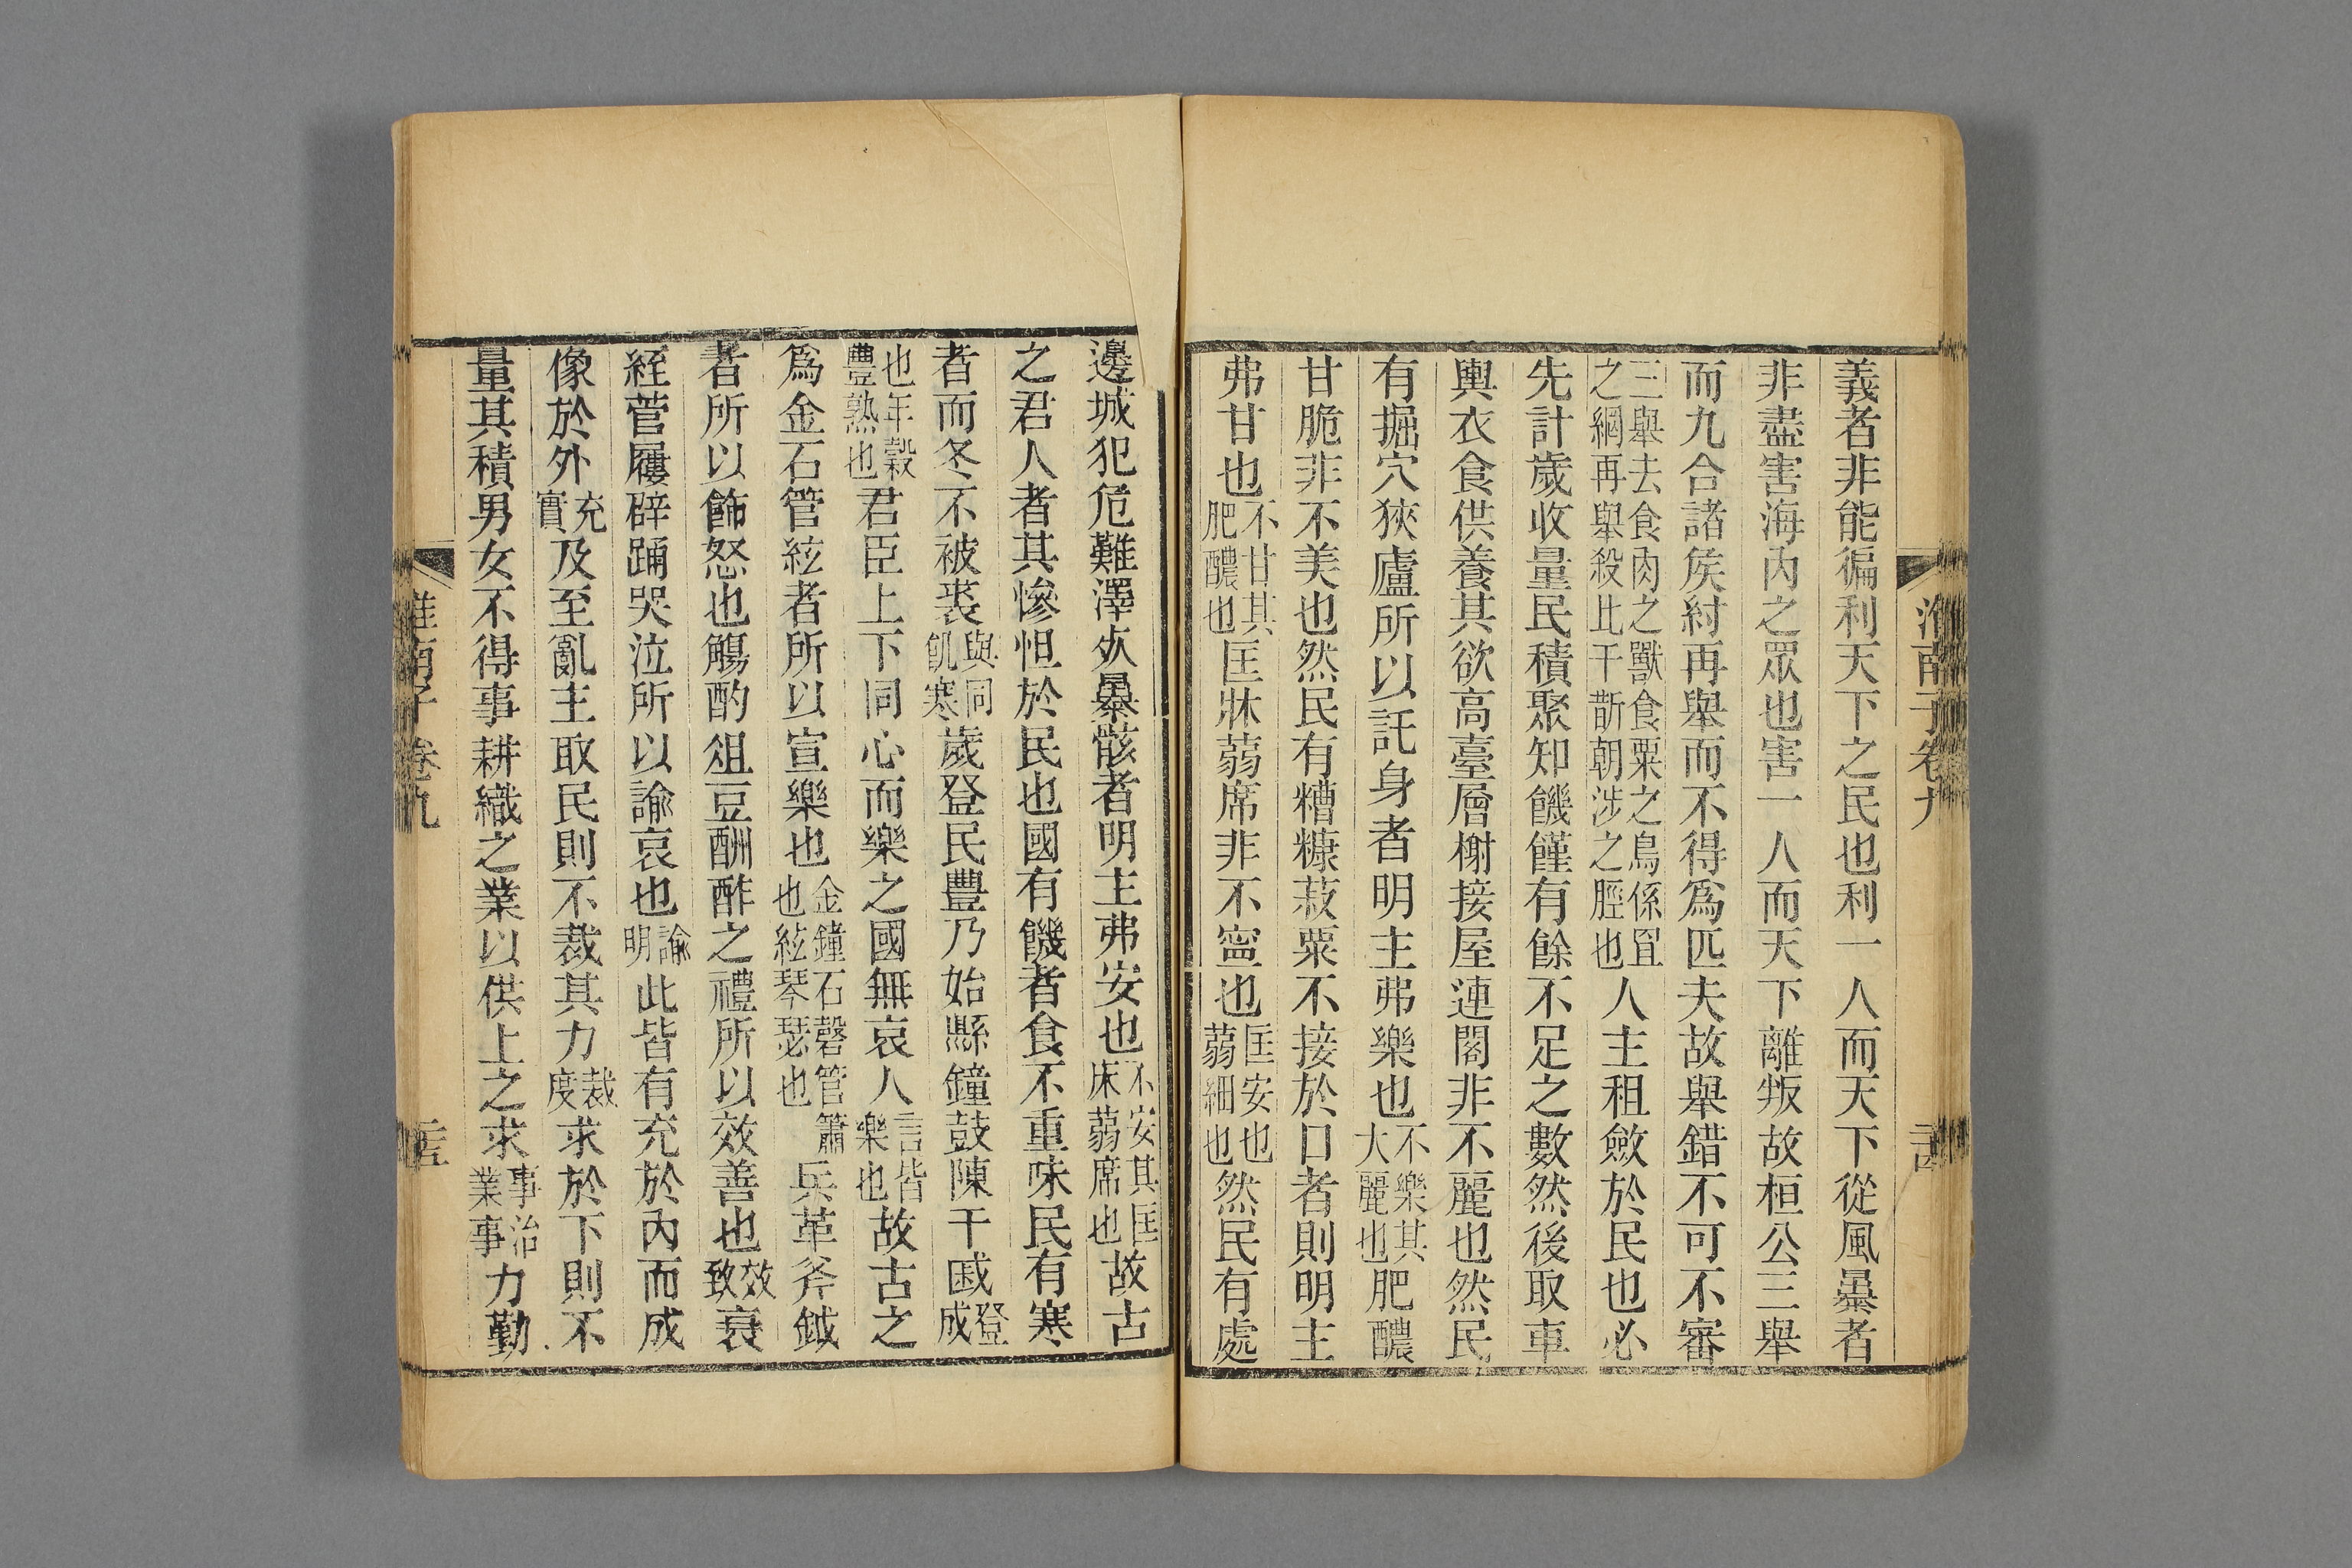 淮南子卷九
義者非能徧利天下之民也利一人而天下從風暴者
非盡害海內之眾也害一人而天下離叛故桓公三舉
而九合諸矦紂再舉而不得爲匹夫故舉錯不可不審
三舉去食肉之獸食粟之鳥係罝之網再舉殺比干斮朝涉之脛也人主租斂於民也必
先計歲收量民積聚知饑饉有餘不足之數然後取車
輿衣食供養其欲高臺層榭接屋連閣非不麗也然民
有掘穴狹廬所以託身者明主弗樂也不樂其大麗也肥醲
甘脆非不美也然民有糟糠菽粟不接於口者則明主
弗甘也不甘其肥醲也匡牀蒻席非不寧也匡安也蒻細也然民有處
邊城犯危難澤𣦸暴骸者明主弗安也不安其匡床蒻席也故古
之君人者其慘怛於民也國有饑者食不重味民有寒
者而冬不被裘與同飢寒歲登民豐乃始縣鐘鼓陳干戚登成
也年穀豐熟也君臣上下同心而樂之國無哀人言皆樂也故古之
爲金石管絃者所以宣樂也金鐘石磬管簫也絃琴瑟也兵革斧鉞
者所以飾怒也觴酌俎豆酬酢之禮所以效善也效致衰
絰菅屨辟踊哭泣所以諭哀也諭明此皆有充於內而成
像於外充實及至亂主取民則不裁其力裁度求於下則不
量其積男女不得事耕織之業以供上之求事治業事力勤
淮南子 卷九